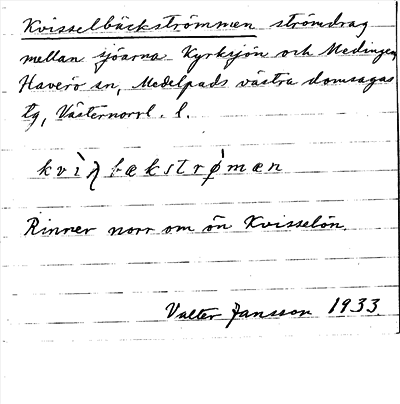 Kvisselbäckströmmen strömdrag
mellan sjöarna Kyrksjön och Medingen
Haverö sn, Medelpads västra domsagas
tg, Västernorrl. l.
Rinner norr om ön Kvisselön.
Valter Jansson 1933